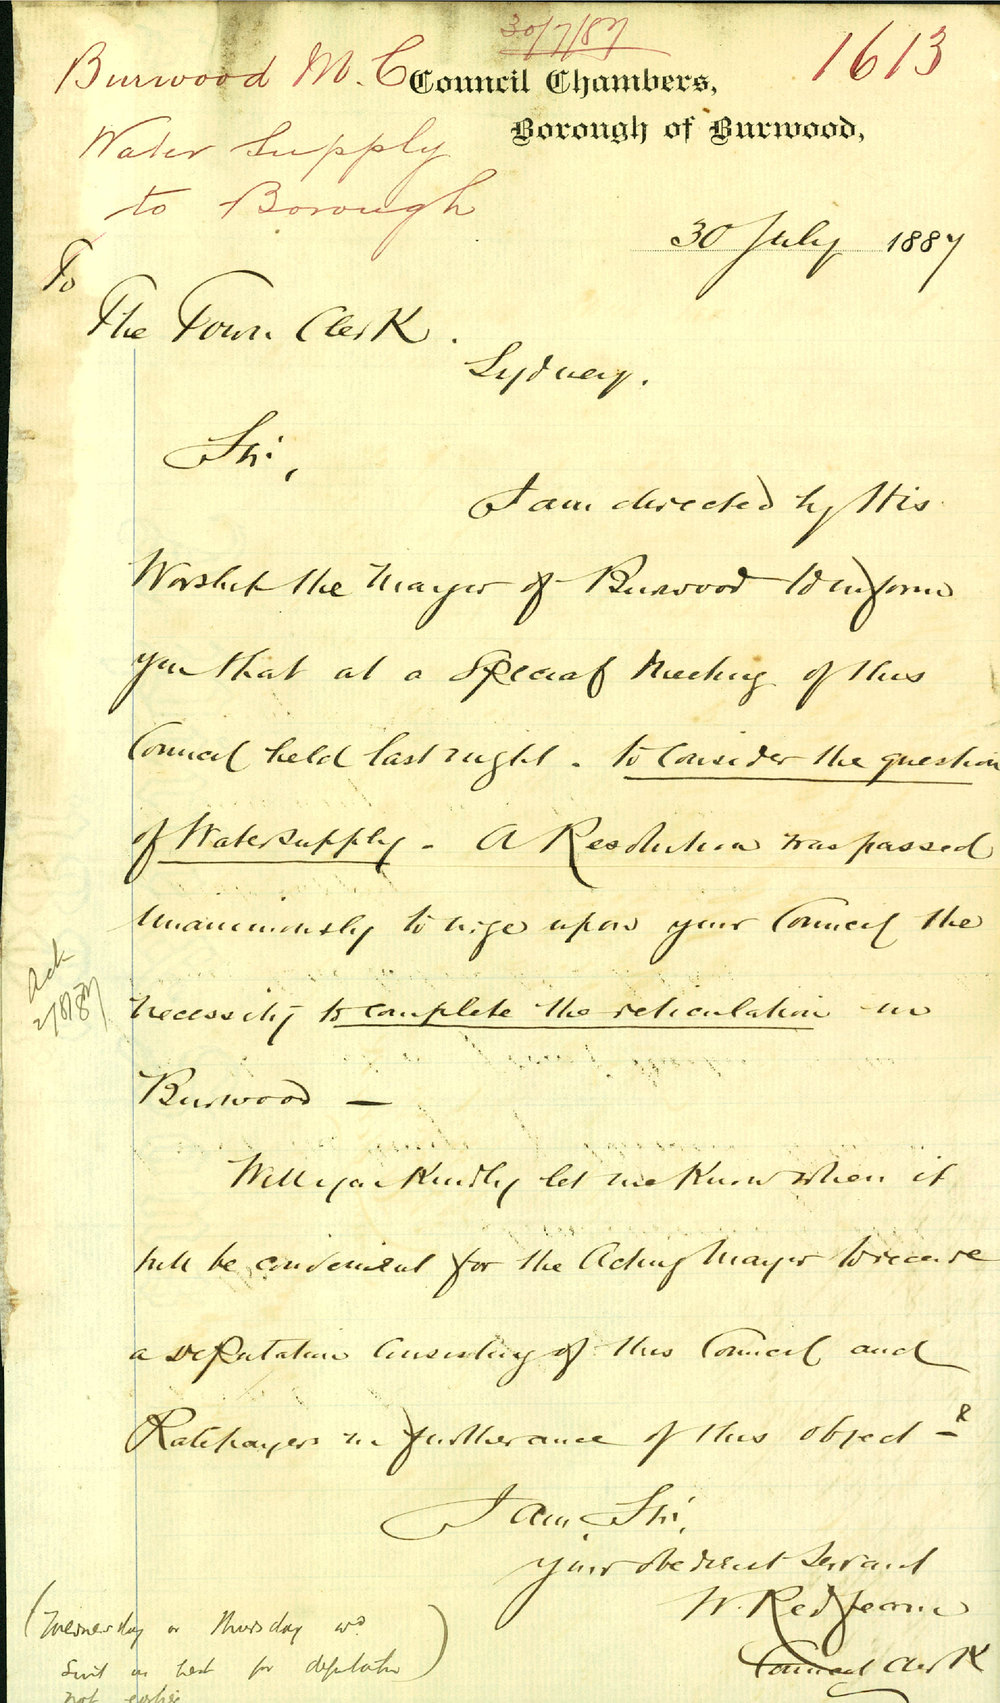 30/7/87
1613
Burwood M. C.
Council Chambers,
Borough of Burwood,
Water Supply
to Borough
30 July 1887
To
The Town Clerk.
Sydney.
Sir,
I am directed by His
Worship the Mayor of Burwood to inform
you that at a Special Meeting of this
Council held last night. to consider the question
of Water supply - A Resolution was passed
Unanimously to urge upon your Council the
necessity to complete the reticulation in
Burwood —
Will you kindly let me know when it
will be convenient for the Acting Mayor to receive
a deputation consisting of this Council and
Ratepayers in furtherance of this object - &
I am, Sir,
your obedient servant
W. Redfearn
Council Clerk
Ack
2/8/87
(Wednesday or Thursday wd
suit us best for deputation)
not